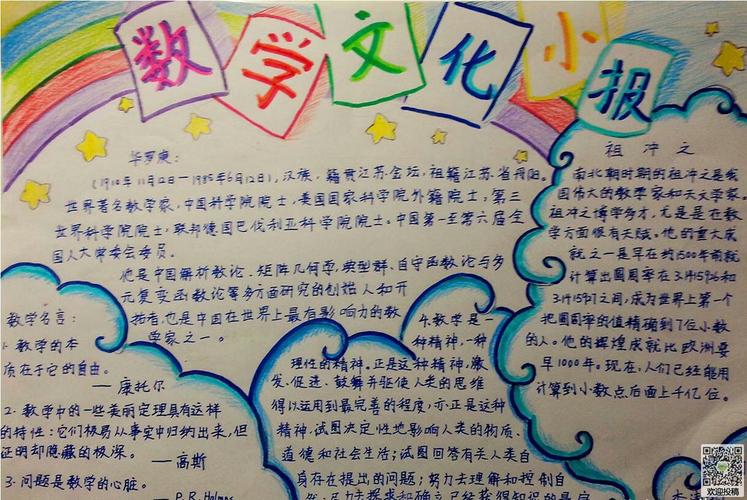 数学文化小报
华罗庚：
（1910年11月12日—1985年6月12日），汉族，籍贯江苏金坛，祖籍江苏省丹阳。
世界著名数学家，中国科学院院士，美国国家科学院外籍院士，第三
世界科学院院士，联邦德国巴伐利亚科学院院士。中国第一至第六届全
国人大常委会委员。
他是中国解析数论、矩阵几何学、典型群、自守函数论与多
元复变函数论等多方面研究的创始人和开
拓者，也是中国在世界上最有影响力的数
学家之一。
祖冲之
南北朝时期的祖冲之是我
国伟大的数学家和天文学家。
祖冲之博学多才，尤是是在数
学方面很有天赋。他的重大成
就之一是早在约1500年前就
计算出圆周率在3.1415926和
3.1415927之间，成为世界上第一个
把圆周率的值精确到7位小数
的人。他的辉煌成就比欧洲要
早1000年。现在，人们已经能用
计算到小数点后面上千亿位。
数学名言：
1. 数学的本
质在于它的自由。
—康托尔
2. 数学中的一些美丽定理具有这样
的特性：它们极易从事实中归纳出来，但
证明却隐藏的极深。
—高斯
3. 问题是数学的心脏。
—P.R.Halmos
4. 数学是一
种精神，一种
理性的精神。正是这种精神，激
发、促进、鼓舞并驱使人类的思维
得以运用到最完善的程度，亦正是这种
精神，试图决定性地影响人类的物质、
道德和社会生活；试图回答有关人类自
身存在提出的问题；努力去理解和控制自
然；尽力去探求和确立已经获得知识的
欢迎投稿